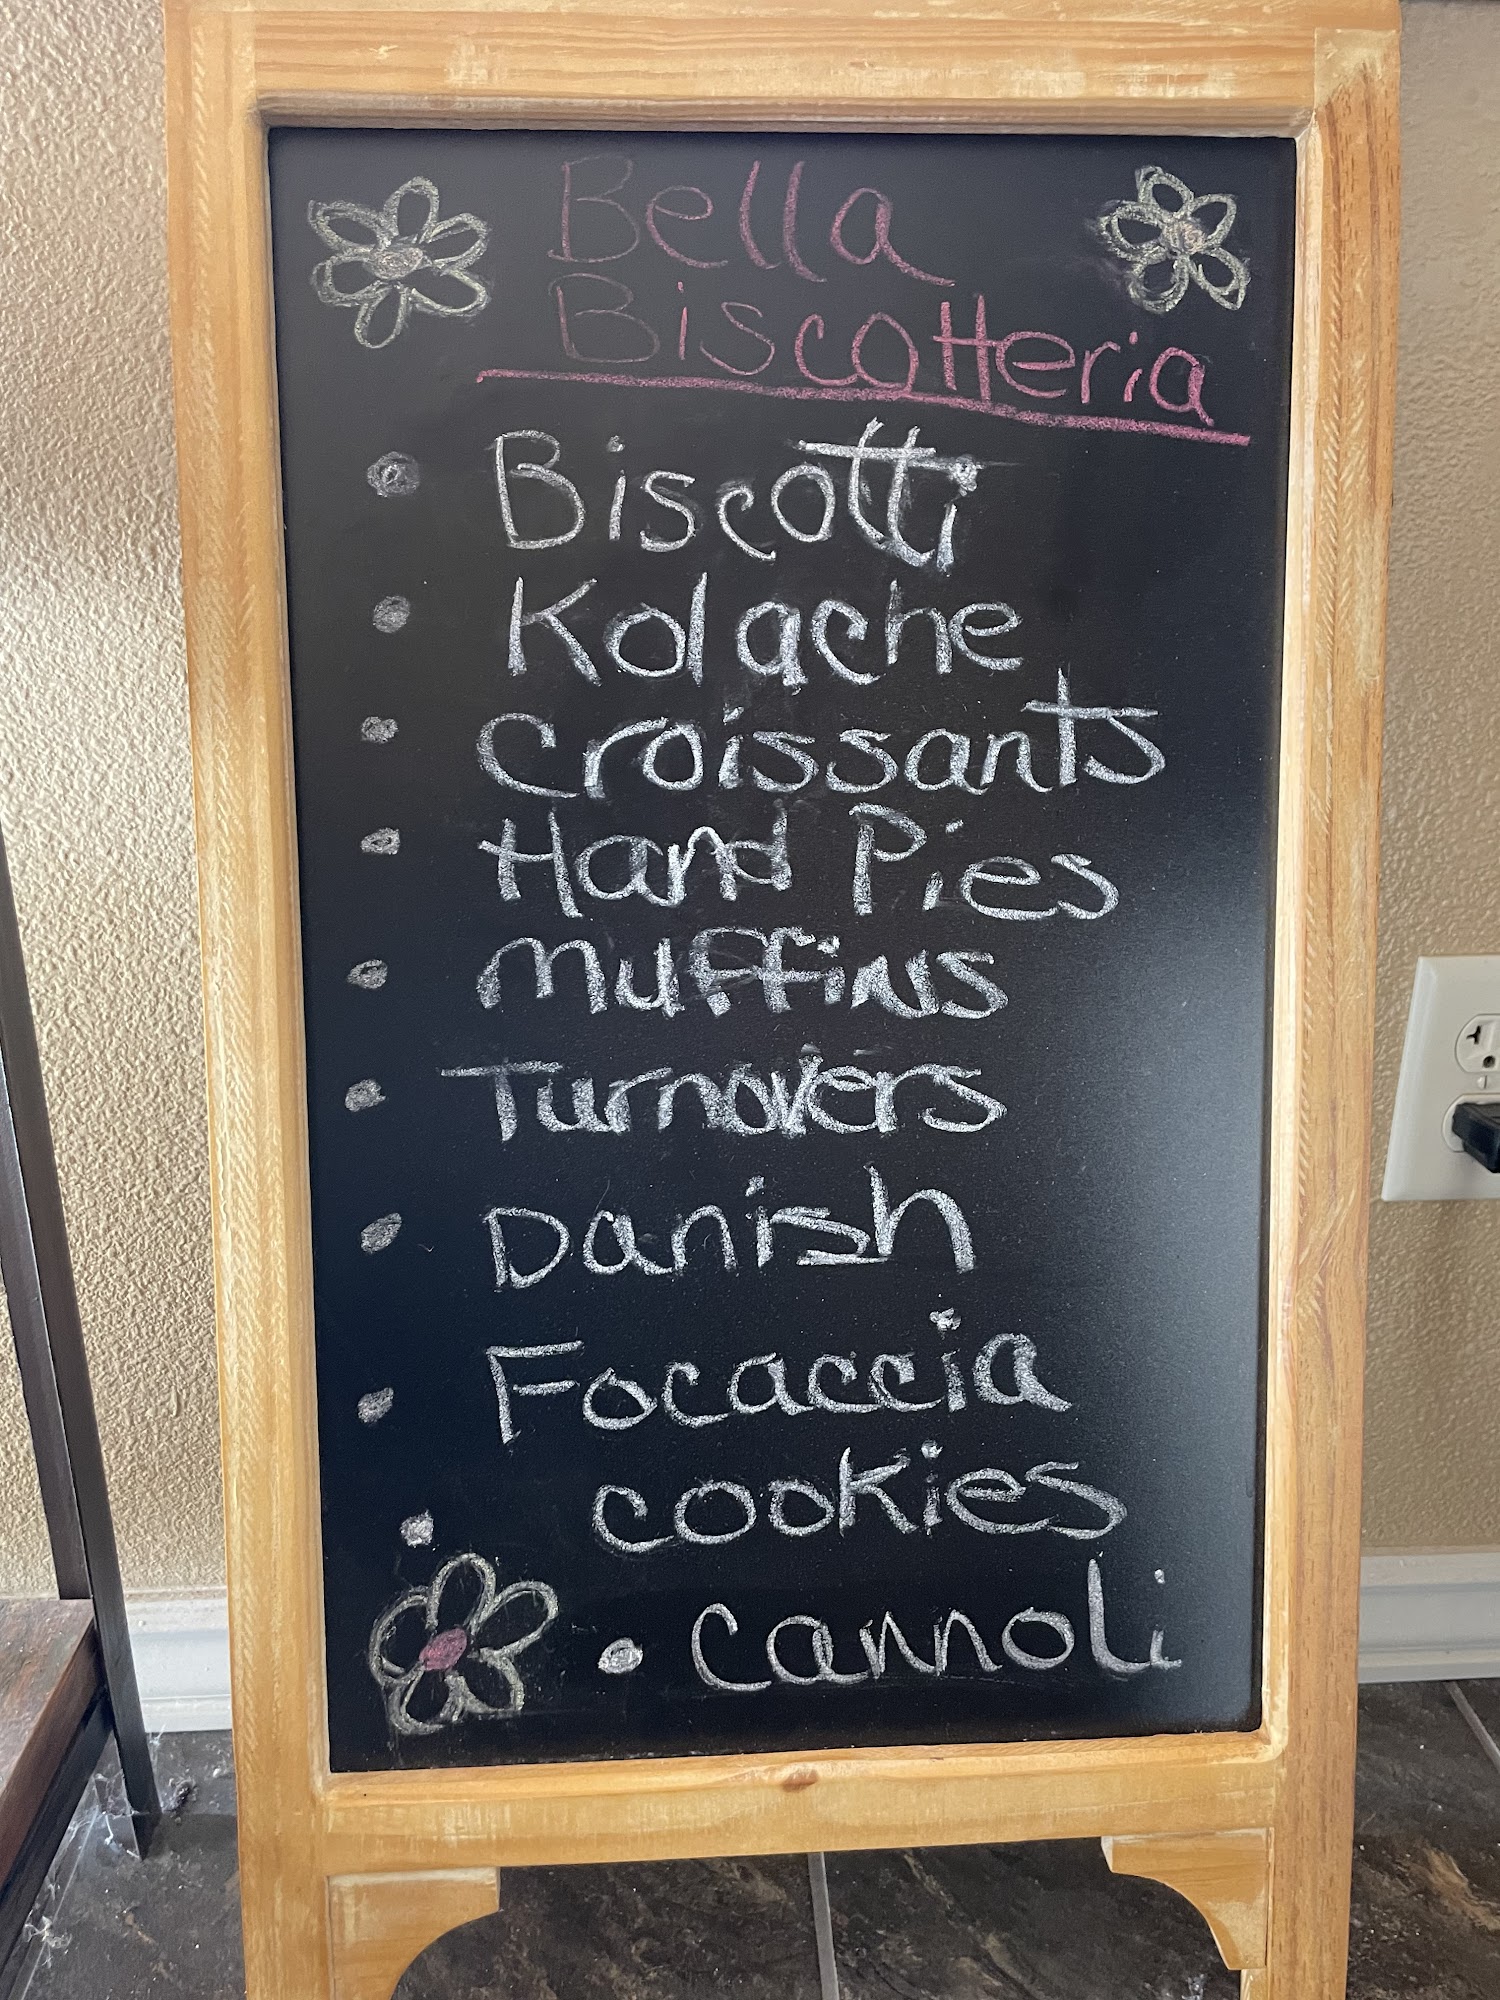 Bella
Biscotteria
• Biscotti
• Kolache
• Croissants
• Hand Pies
• Muffins
• Turnovers
• Danish
• Focaccia
• cookies
• cannoli